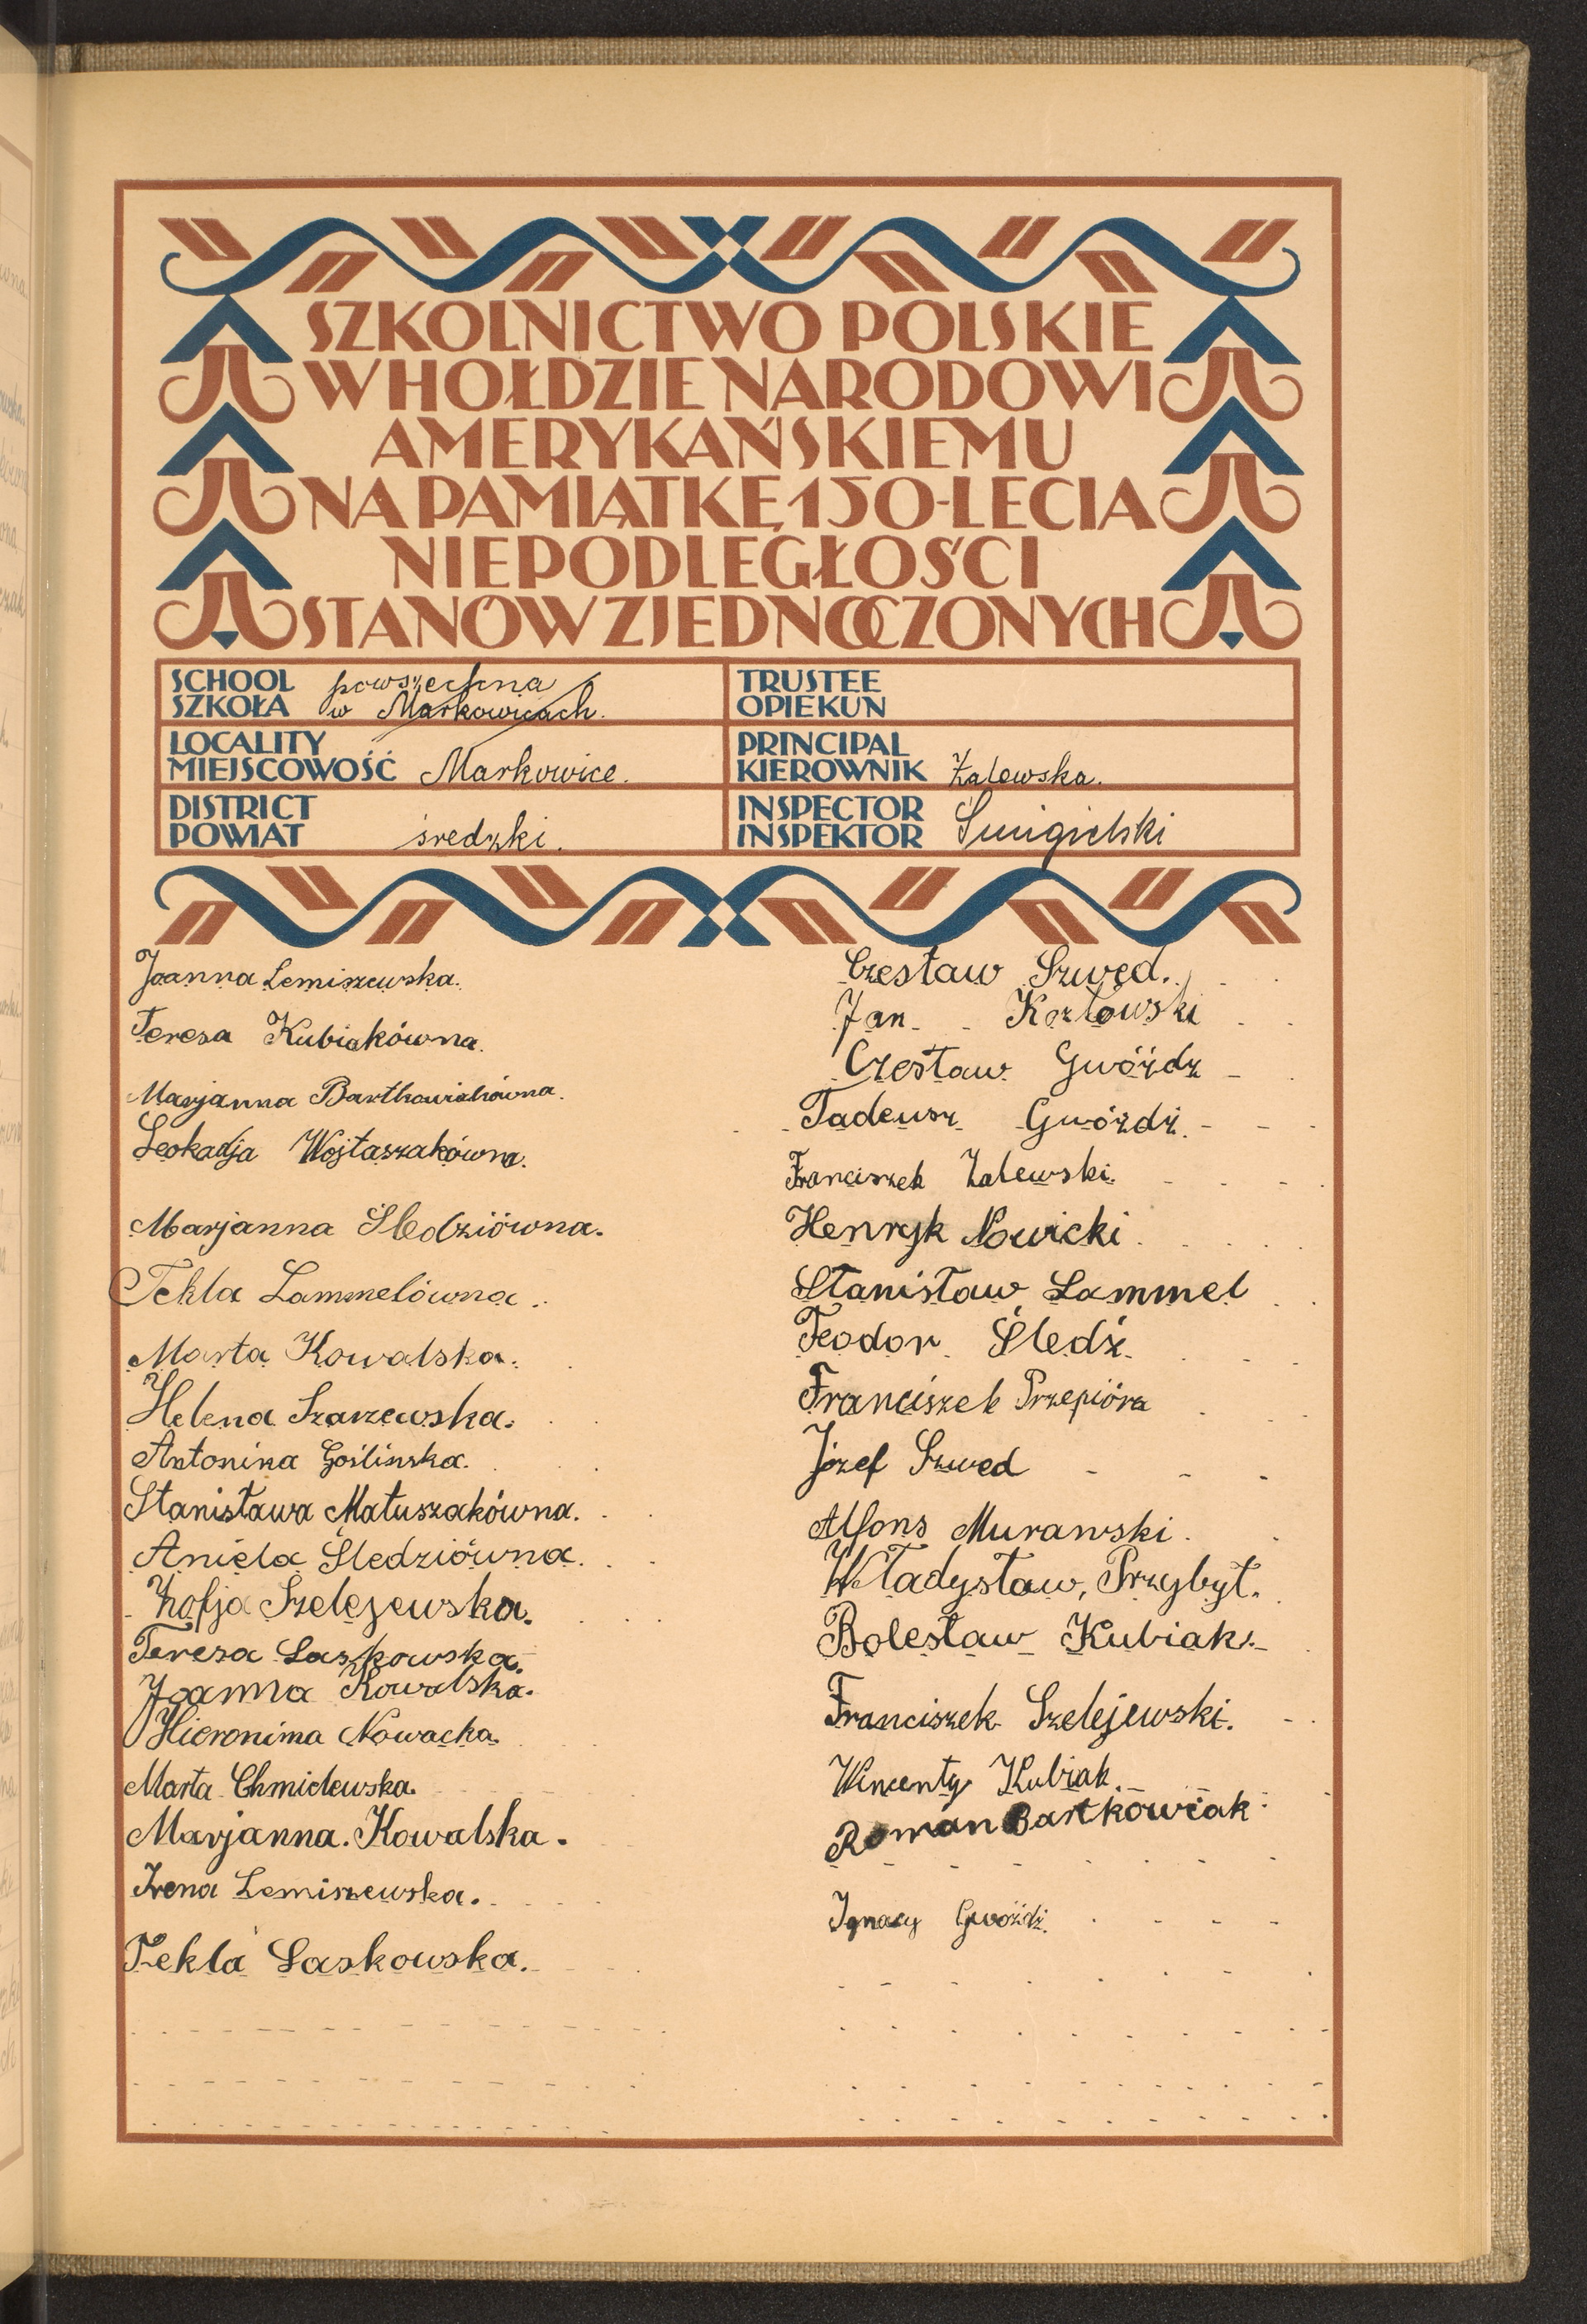 SZKOLNICTWO POLSKIE
W HOŁDZIE NARODOWI
AMERYKAŃSKIEMU
NA PAMIĄTKĘ 150-LECIA
NIEPODLEGŁOŚCI
STANÓW ZJEDNOCZONYCH
SCHOOL
SZKOŁA
powszechna
w Markowicach.
TRUSTEE
OPIEKUN
LOCALITY
MIEJSCOWOŚĆ
Markowice.
PRINCIPAL
KIEROWNIK
Zalewska.
DISTRICT
POWIAT
średzki.
INSPECTOR
INSPEKTOR
Śmigielski
Joanna Lemiszewska.
Teresa Kubiakówna.
Marjanna Bartkowiakówna.
Leokadja Wojtaszakówna.
Marjanna Śledziówna.
Tekla Lammelówna.
Marta Kowalska.
Helena Szarzewska.
Antonina Goślinska.
Stanisława Matuszakówna.
Aniela Śledziówna.
Zofja Szelejewska.
Teresa Laskowska.
Joanna Kowalska.
Hieronima Nowacka.
Marta Chmielewska.
Marjanna. Kowalska.
Irena Lemiszewska.
Tekla Laskowska.
Czesław Szwed.
Jan Kozłowski
Czesław Gwóźdz
Tadeusz Gwóździ.
Franciszek Zalewski.
Henryk Nowicki.
Stanisław Lammel
Teodor Śledź.
Franciszek Przepióra
Józef Szwed
Alfons Murawski.
Władysław, Przybył.
Bolesław Kubiak.
Franciszek Szelejewski.
Wincenty Kubiak.
Roman Bartkowiak
Ignacy Gwóźdź.